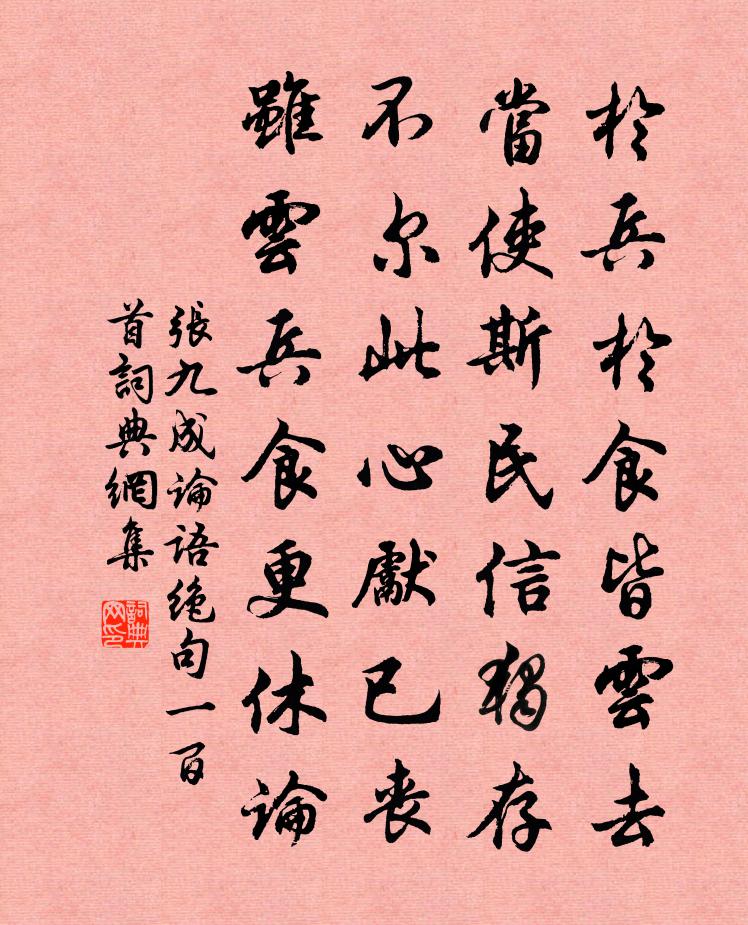 於兵於食皆雲去
當使斯民信獨存
不尔此心獻已喪
雖雲兵食更休論
張九成論語绝句一百
首詞典網集
詞典网印